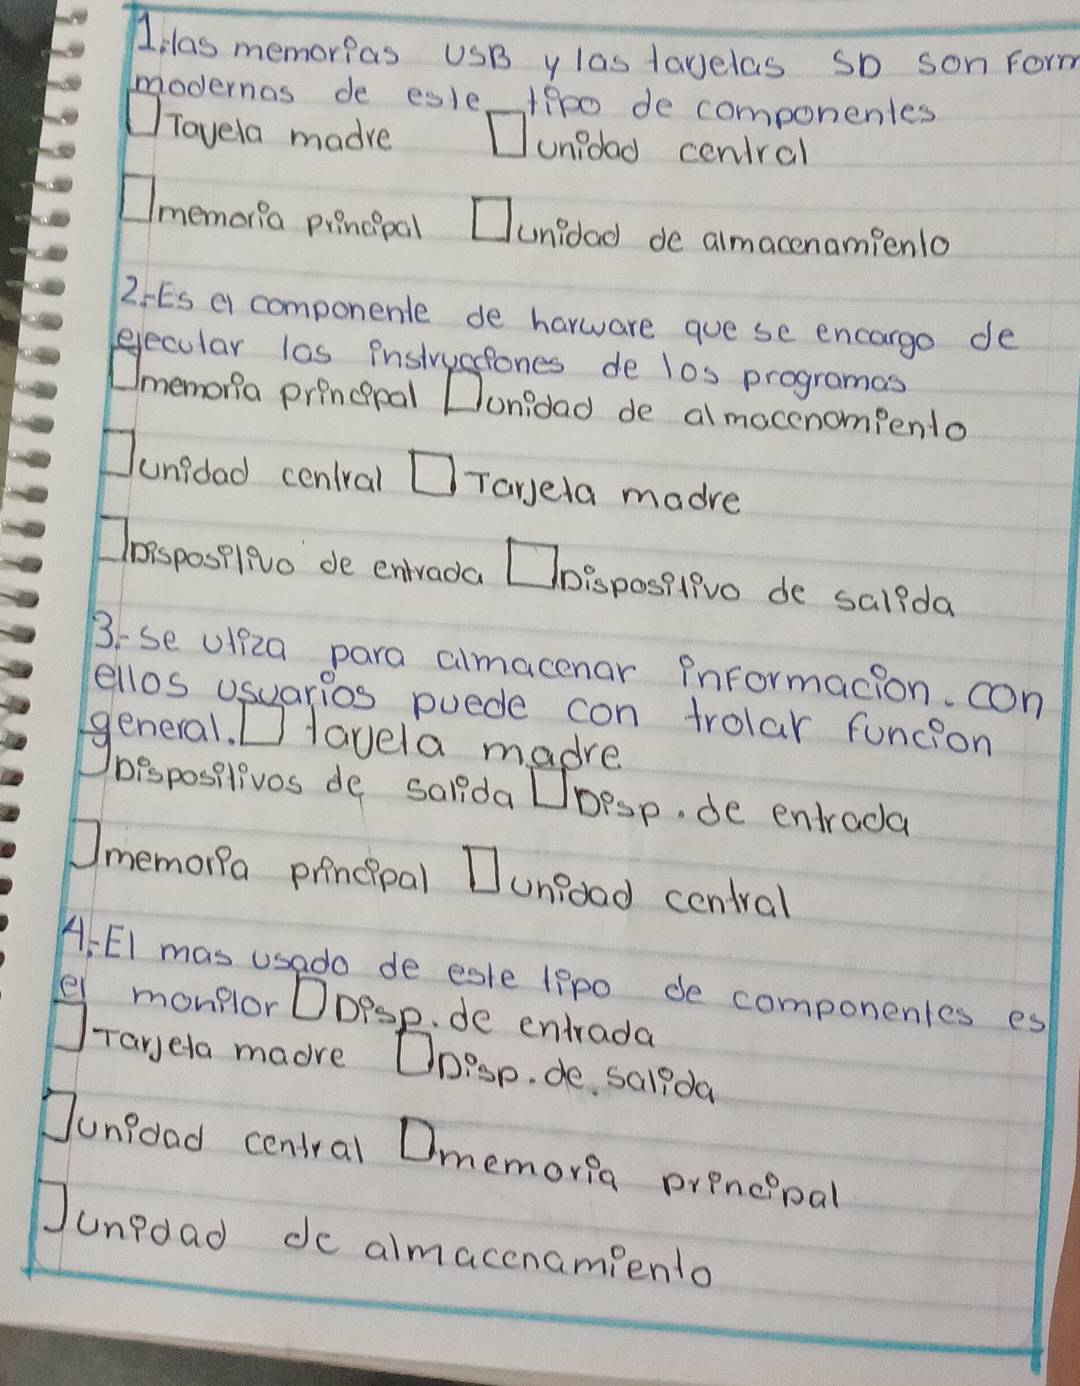 1.las memorias USB y las tarjelas SD son Form
modernas de este tipo de componentes
Tarjela madre unidad central
memoria principal unidad de almacenamiento
2.-Es el componente de harware que se encargo de
ejecular las instrucciones de los programas
memoria principal unidad de almacenamiento
unidad central Tarjeta madre
Dispositivo de entrada Dispositivo de salida
3.-se utiza para almacenar informacion. con
ellos usuarios puede con trolar funcion
general. tarjela madre
Dispositivos de salida Disp. de entrada
memoria principal unidad central
4.-El mas usado de este tipo de componentes es
el monitor Disp. de entrada
Tarjeta madre Disp. de. salida
unidad central memoria principal
unidad de almacenamiento